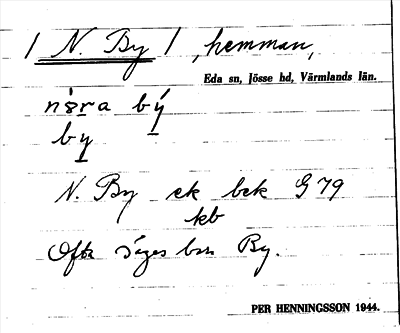 / N. By / , hemman,
Eda sn, Jösse hd, Värmlands län.
nø̀ra bý
by
N. By ek bck G 79
kb
Ofta säges bara By.
PER HENNINGSSON 1944.